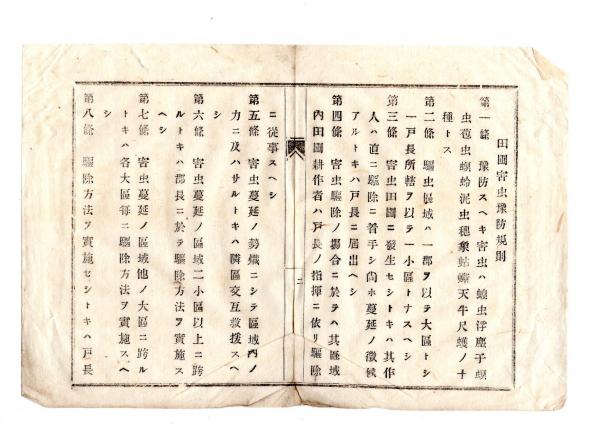 田圃害虫豫防規則
第一條 豫防スヘキ害虫ハ蝗虫浮塵子螟
虫苞虫螟蛉泥虫穂象蛄蟖天牛尺蠖ノ十
種トス
第二條 驅虫區域ハ一郡ヲ以テ大區トシ
一戸長所轄ヲ以テ一小區トナスヘシ
第三條 害虫田圃ニ發生セシトキハ其作
人ハ直ニ驅除ニ着手シ尙ホ蔓延ノ徴候
アルトキハ戸長ニ届出ヘシ
第四條 害虫驅除ノ塲合ニ於テハ其區域
内田圃耕作者ハ戸長ノ指揮ニ依リ驅除
二
ニ從事スヘシ
第五條 害虫蔓延ノ勢熾ニシテ區域内ノ
力ニ及ハサルトキハ隣區交互救援スヘ
シ
第六條 害虫蔓延ノ區域二小區以上ニ跨
ルトキハ郡長ニ於テ驅除方法ヲ實施ス
ヘシ
第七條 害虫蔓延ノ區域他ノ大區ニ跨ル
トキハ各大區毎ニ驅除方法ヲ實施スヘ
シ
第八條 驅除方法ヲ實施セシトキハ戸長